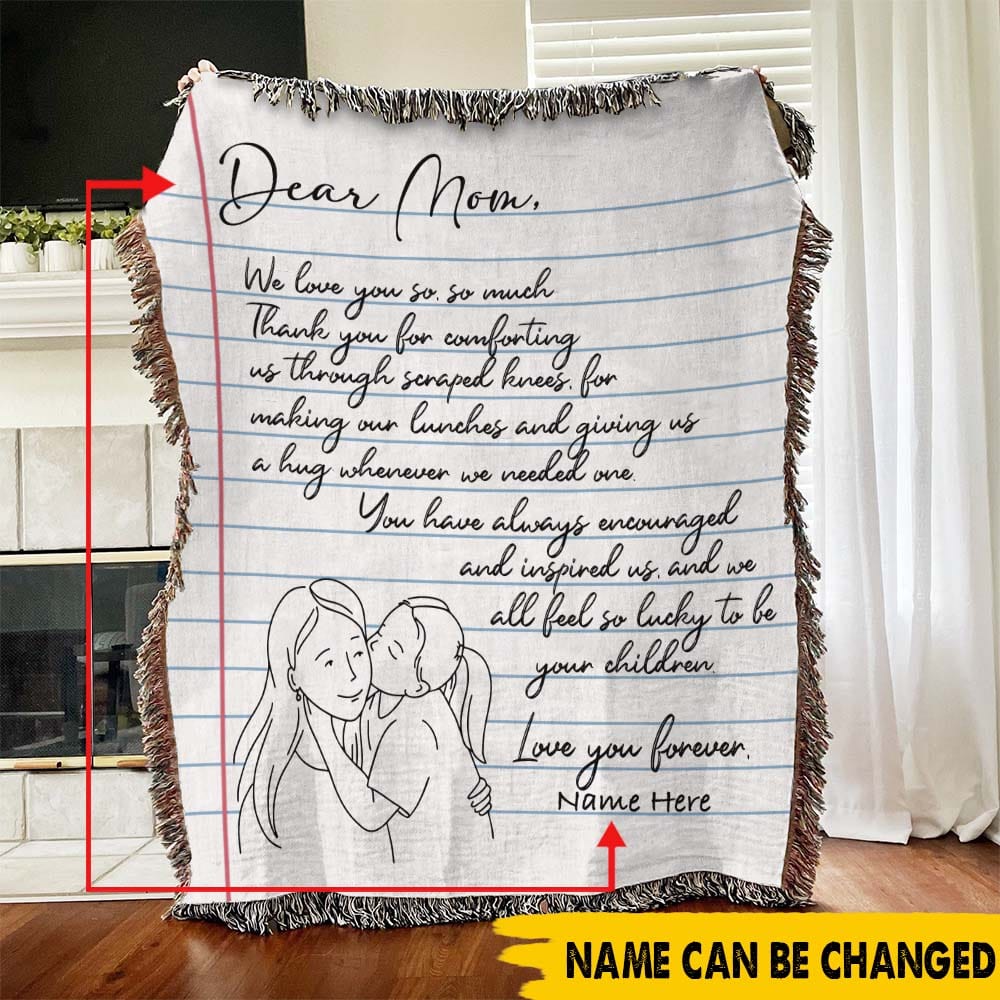 Dear Mom,
We love you so, so much
Thank you for comforting
us through scraped knees, for
making our lunches and giving us
a hug whenever we needed one.
You have always encouraged
and inspired us, and we
all feel so lucky to be
your children.
Love you forever,
Name Here
NAME CAN BE CHANGED